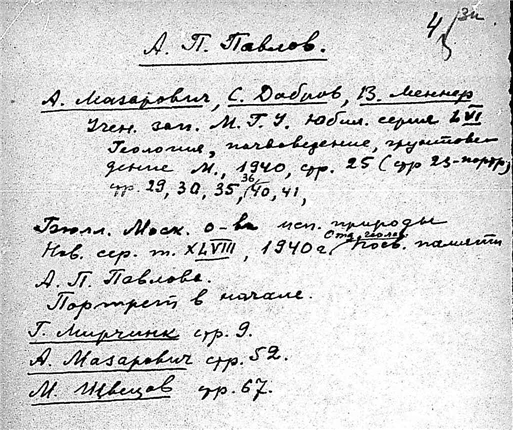 4 зп.
А. П. Павлов.
А. Мазарович, С. Добров, В. Меннер
Учен. зап. М. Г. У. Юбил. серия LVI
Геология, почвоведение, грунтове-
дение М., 1940, стр. 25 (стр 23-портр)
стр. 29, 30, 35, 36, 40, 41,
Бюлл. Моск. о-ва исп. природы
Нов. сер. т. XLVIII, 1940 г. Отд. геолог. Посв. памяти
А. П. Павлова.
Портрет в начале.
Г. Мирчинк стр. 9.
А. Мазарович стр. 52.
М. Швецов стр. 67.